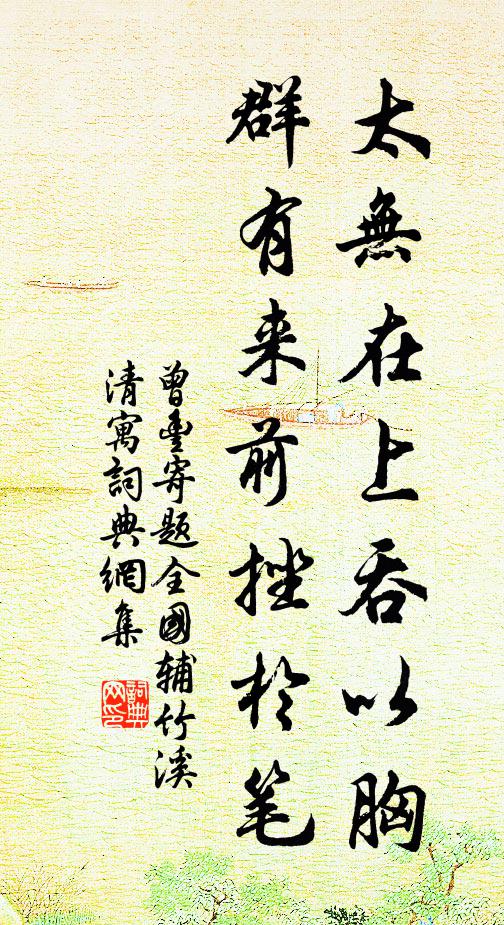 太無在上吞以胸
群有来前挫於笔
曾豐寄題全國辅竹溪
清寓詞典網集
詞典网印